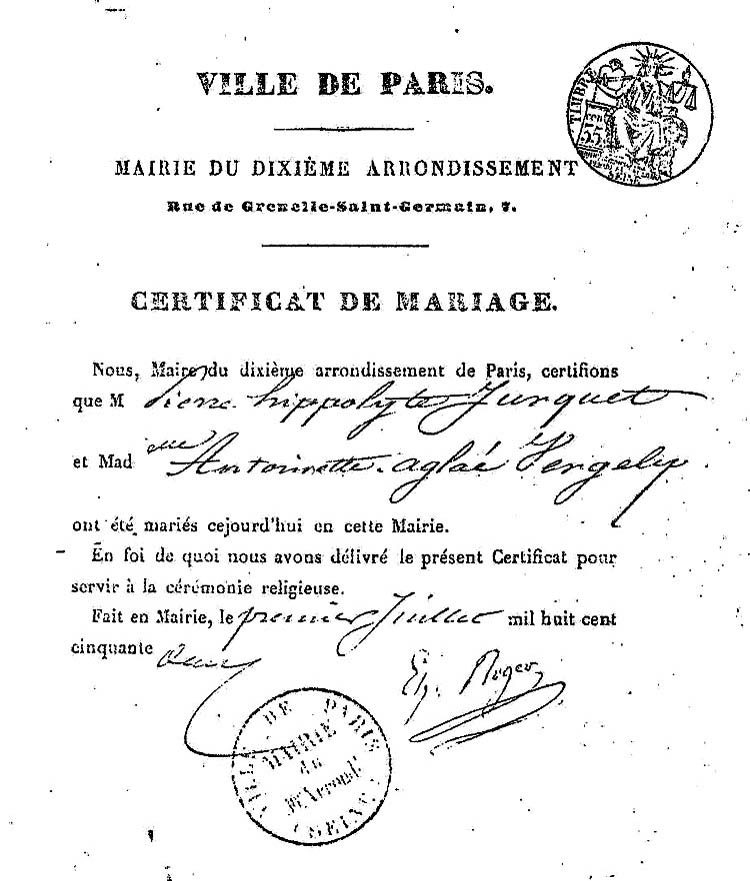 VILLE DE PARIS.
TIMBRE
55
MAIRIE DU DIXIÈME ARRONDISSEMENT
Rue de Grenelle-Saint-Germain, 7.
CERTIFICAT DE MARIAGE.
Nous, Maire du dixième arrondissement de Paris, certifions
que M Pierre hippolyte Jurquet
et Mad elle Antoinette aglaé Vergely
ont été mariés cejourd'hui en cette Mairie.
En foi de quoi nous avons délivré le présent Certificat pour
servir à la cérémonie religieuse.
Fait en Mairie, le premier Juillet mil huit cent
cinquante
Roger
VILLE DE PARIS
MAIRIE
du
10e Arrond.t
(SEINE)